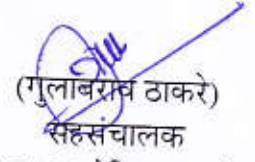 (गुलाबराव ठाकरे)
सहसंचालक